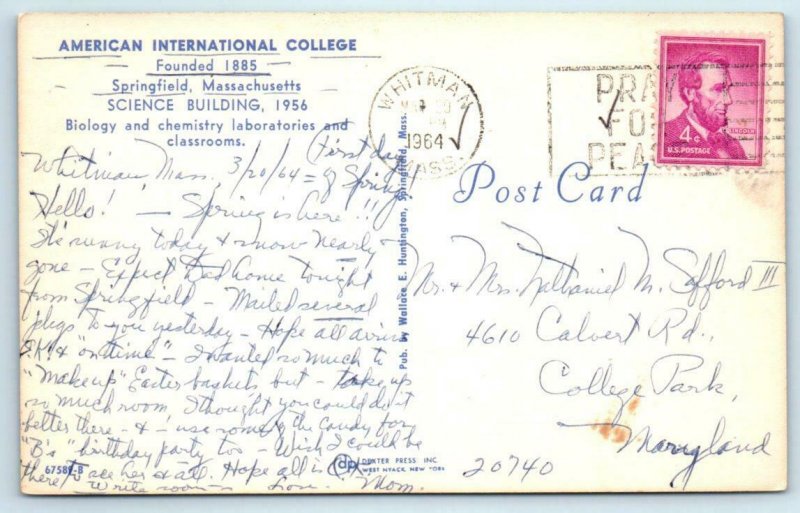 AMERICAN INTERNATIONAL COLLEGE
Founded 1885
Springfield, Massachusetts
SCIENCE BUILDING, 1956
Biology and chemistry laboratories and
classrooms.
(First day
Whitman Mass. 3/20/64 = of Spring)
Hello! — Spring is here!!
It's sunny today & snow nearly
gone – Expect Dad home tonight
from Springfield – Mailed several
pkgs to you yesterday – Hope all arrive
O.K. & "on time" – I wanted so much to
"Make up" Easter baskets but – take up
so much room. I thought you could do it
better there – & – use some of the candy for
"B's" birthday party too – Wish I could be
there to see her & all. Hope all is
Write soon – Love Mom.
67589-B
DEXTER PRESS INC.
WEST NYACK, NEW YORK
dp
Pub. by Wallace E. Huntington, Springfield, Mass.
WHITMAN
1964
MASS.
PRAY
FOR
PEACE
4¢
LINCOLN
U.S. POSTAGE
Post Card
Mr. & Mrs. Nathaniel M. Safford III
4610 Calvert Rd.,
College Park,
Maryland
20740